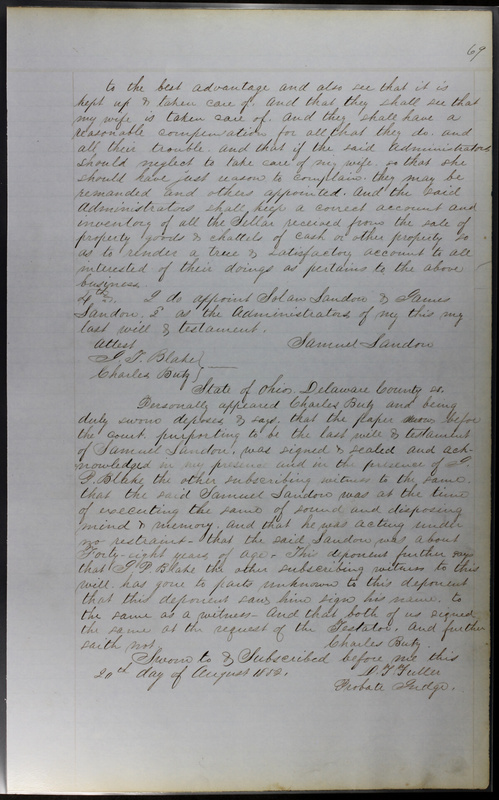 69
to the best advantage and also see that it is
kept up & taken care of. And that they shall see that
my wife is taken care of. And they shall have a
reasonable compensation for all that they do. and
all their trouble. and that if the said Administrators
should neglect to take care of my wife. so that she
should have just reason to complain. they may be
remanded and others appointed. And the said
Administrators shall keep a correct account and
inventory of all the Dollar received from the sale of
property goods & chattels of cash or other property so
as to render a true & satisfactory account to all
interested of their doings as pertains to the above
business.
4th. I do appoint Landon & James
Landon. as the Administrators of my this my
last will & testament.
Attest Samuel Landon
Blake
Charles Buty
State of Ohio. Delaware County ss.
Personally appeared Charles Buty and being
duly sworn deposes & says, that the paper before
the court, purporting to be the last will & testament
of Samuel Landon. was signed & sealed and ack-
nowledged in my presence and in the presence of
P. Blake the other subscribing witness to the same.
that the said Samuel Landon was at the time
of executing the same of sound and disposing
mind & memory. and that he was acting under
no restraint - that the said Landon was about
Forty-eight years of age - This deponent further says
that P. Blake the other subscribing witness to this
will. has gone to parts unknown to this deponent
that this deponent saw him sign his name. to
the same as a witness - And that both of us signed
the same at the request of the Testator. And further
saith not. Charles Buty
Sworn to & Subscribed before me this
20th day of August
T. Fuller
Probate Judge.